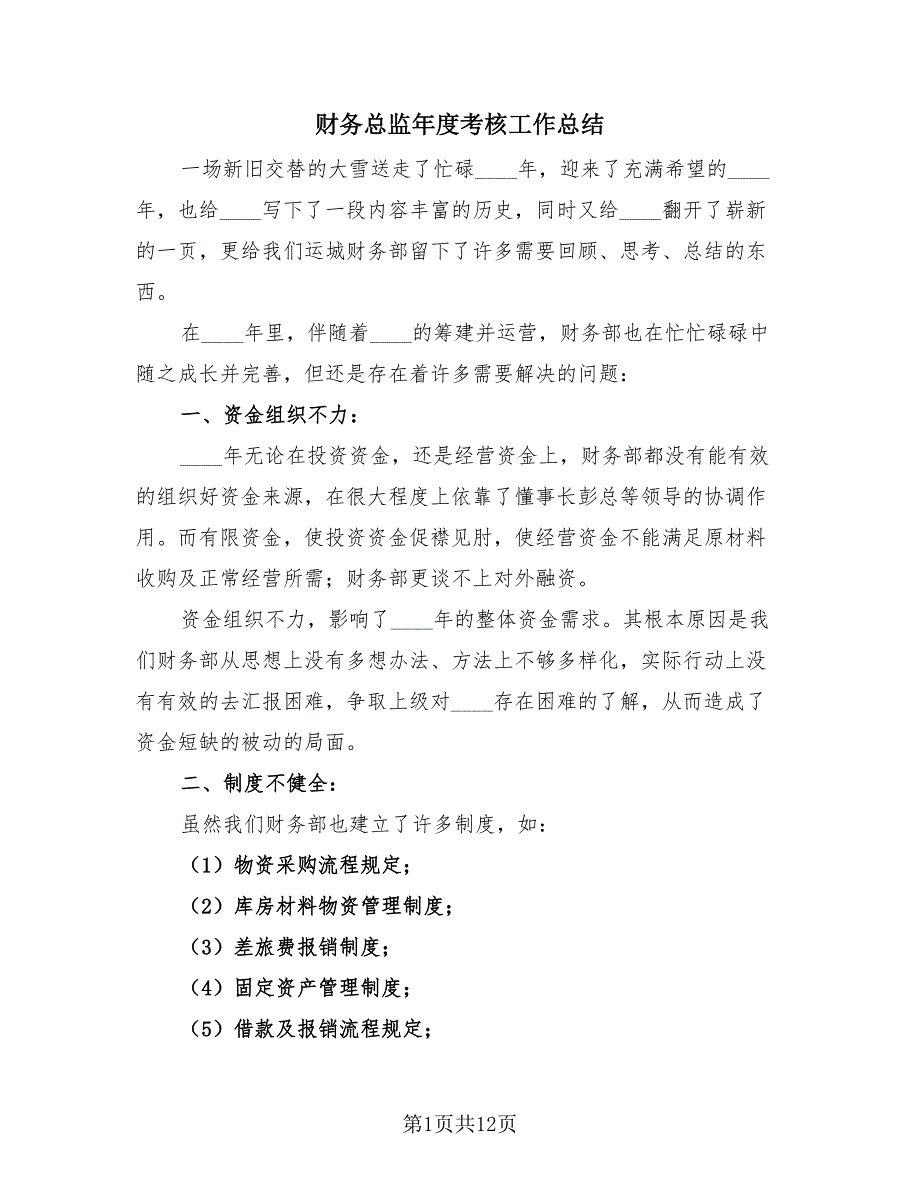 财务总监年度考核工作总结
一场新旧交替的大雪送走了忙碌____年，迎来了充满希望的____
年，也给____写下了一段内容丰富的历史，同时又给____翻开了崭新
的一页，更给我们运城财务部留下了许多需要回顾、思考、总结的东
西。
在____年里，伴随着____的筹建并运营，财务部也在忙忙碌碌中
随之成长并完善，但还是存在着许多需要解决的问题：
一、资金组织不力：
____年无论在投资资金，还是经营资金上，财务部都没有能有效
的组织好资金来源，在很大程度上依靠了懂事长彭总等领导的协调作
用。而有限资金，使投资资金促襟见肘，使经营资金不能满足原材料
收购及正常经营所需；财务部更谈不上对外融资。
资金组织不力，影响了____年的整体资金需求。其根本原因是我
们财务部从思想上没有多想办法、方法上不够多样化，实际行动上没
有有效的去汇报困难，争取上级对____存在困难的了解，从而造成了
资金短缺的被动的局面。
二、制度不健全：
虽然我们财务部也建立了许多制度，如：
（1）物资采购流程规定；
（2）库房材料物资管理制度；
（3）差旅费报销制度；
（4）固定资产管理制度；
（5）借款及报销流程规定；
第1页共12页